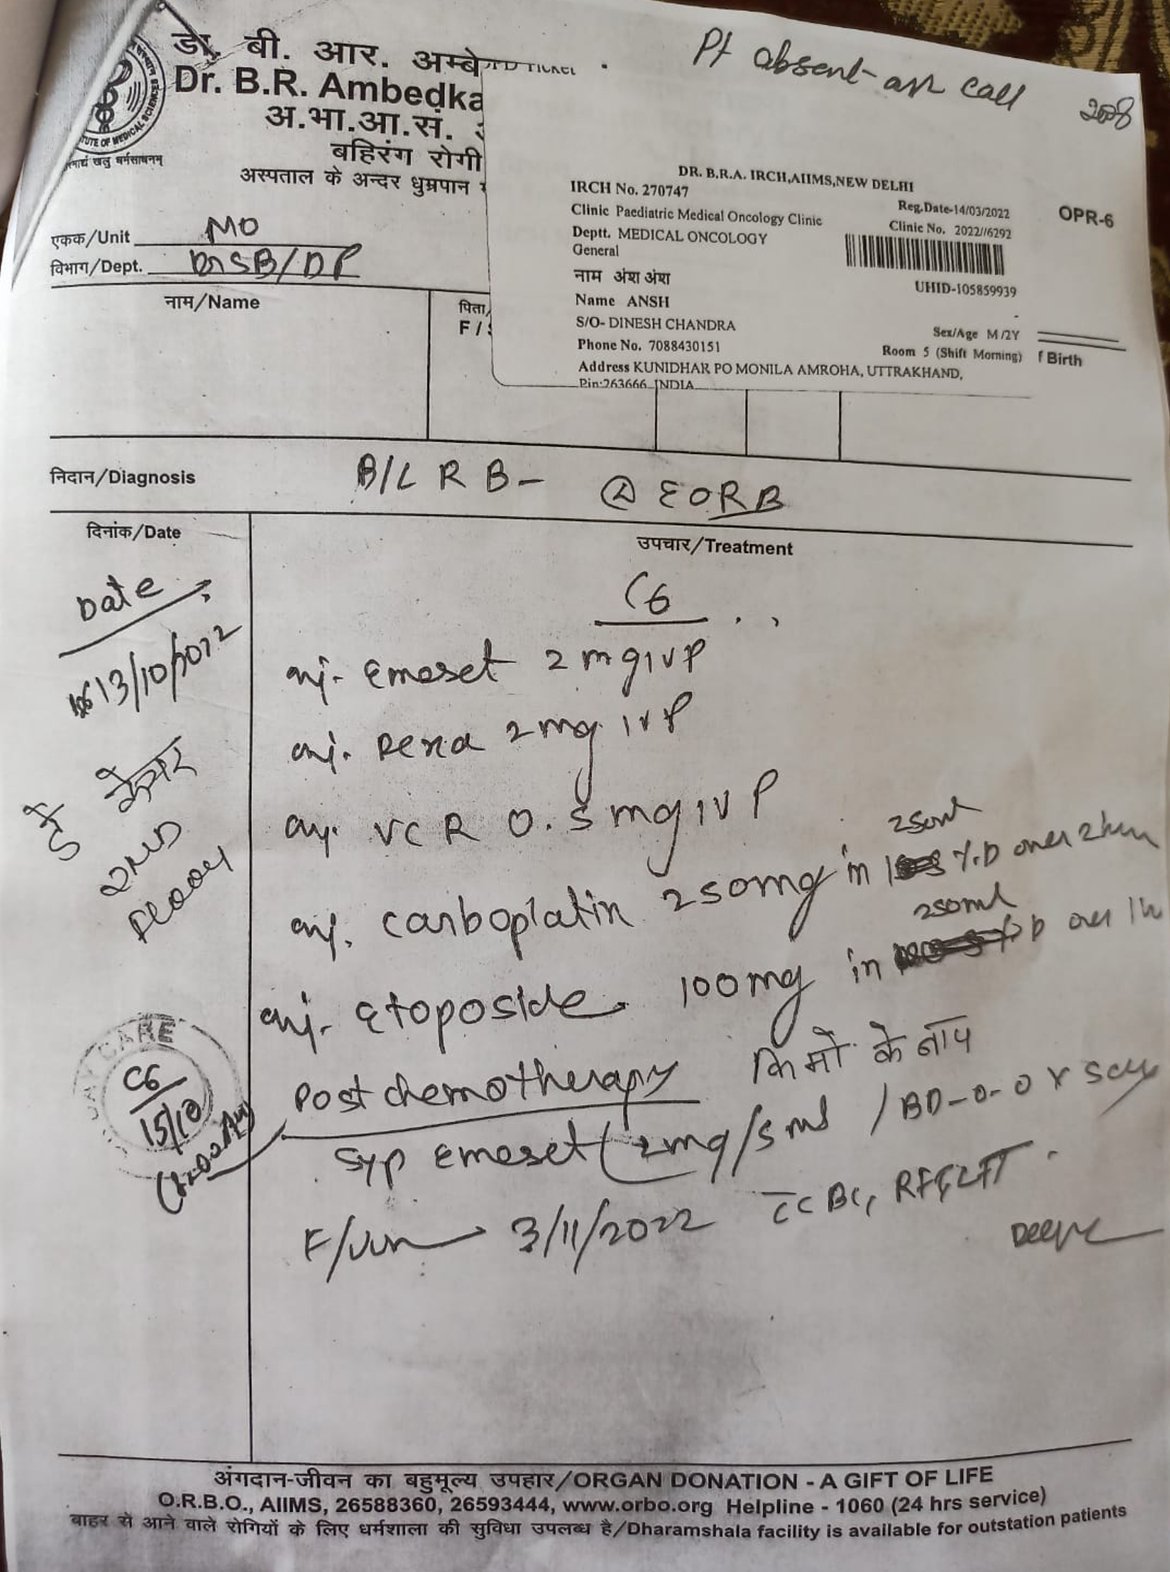 Pt absent
call
डा. बी. आर. अम्बे
Dr. B.R. Ambedka
अ.भा.आ.सं.
बहिरंग रोगी
अस्पताल के अन्दर धुम्रपान
DR. B.R.A. IRCH,AIIMS,NEW DELHI
IRCH No. 270747
Reg.Date-14/03/2022
OPR-6
Clinic Paediatric Medical Oncology Clinic
Clinic No. 2022//6292
Deptt. MEDICAL ONCOLOGY
General
नाम अंश अंश
UHID-105859939
Name ANSH
S/O- DINESH CHANDRA
Sex/Age M /2Y
Phone No. 7088430151
Room 5 (Shift Morning)
f Birth
Address KUNIDHAR PO MONILA AMROHA, UTTRAKHAND,
Pin:263666 INDIA
एकक/Unit MO
विभाग/Dept. SB/DP
नाम/Name
पिता/
F / S
निदान/Diagnosis B/L RB- EORB
दिनांक/Date
उपचार/Treatment
Date
C6
13/10/2022
inj. Emeset 2mg IVP
inj. Dexa 2mg IVP
inj. VCR 0.5mg IVP
250ml
inj. Carboplatin 250mg in over 2
250ml
inj. Etoposide 100mg in over 1
डे केयर
2ND
FLOOR
DAY CARE
C6
15/10
Post chemotherapy किमो के बाद
Syp Emeset (2mg/5ml) BD
3/11/2022 CBC, RFT LFT
अंगदान-जीवन का बहुमूल्य उपहार/ORGAN DONATION - A GIFT OF LIFE
O.R.B.O., AIIMS, 26588360, 26593444, www.orbo.org Helpline - 1060 (24 hrs service)
बाहर से आने वाले रोगियों के लिए धर्मशाला की सुविधा उपलब्ध है/Dharamshala facility is available for outstation patients